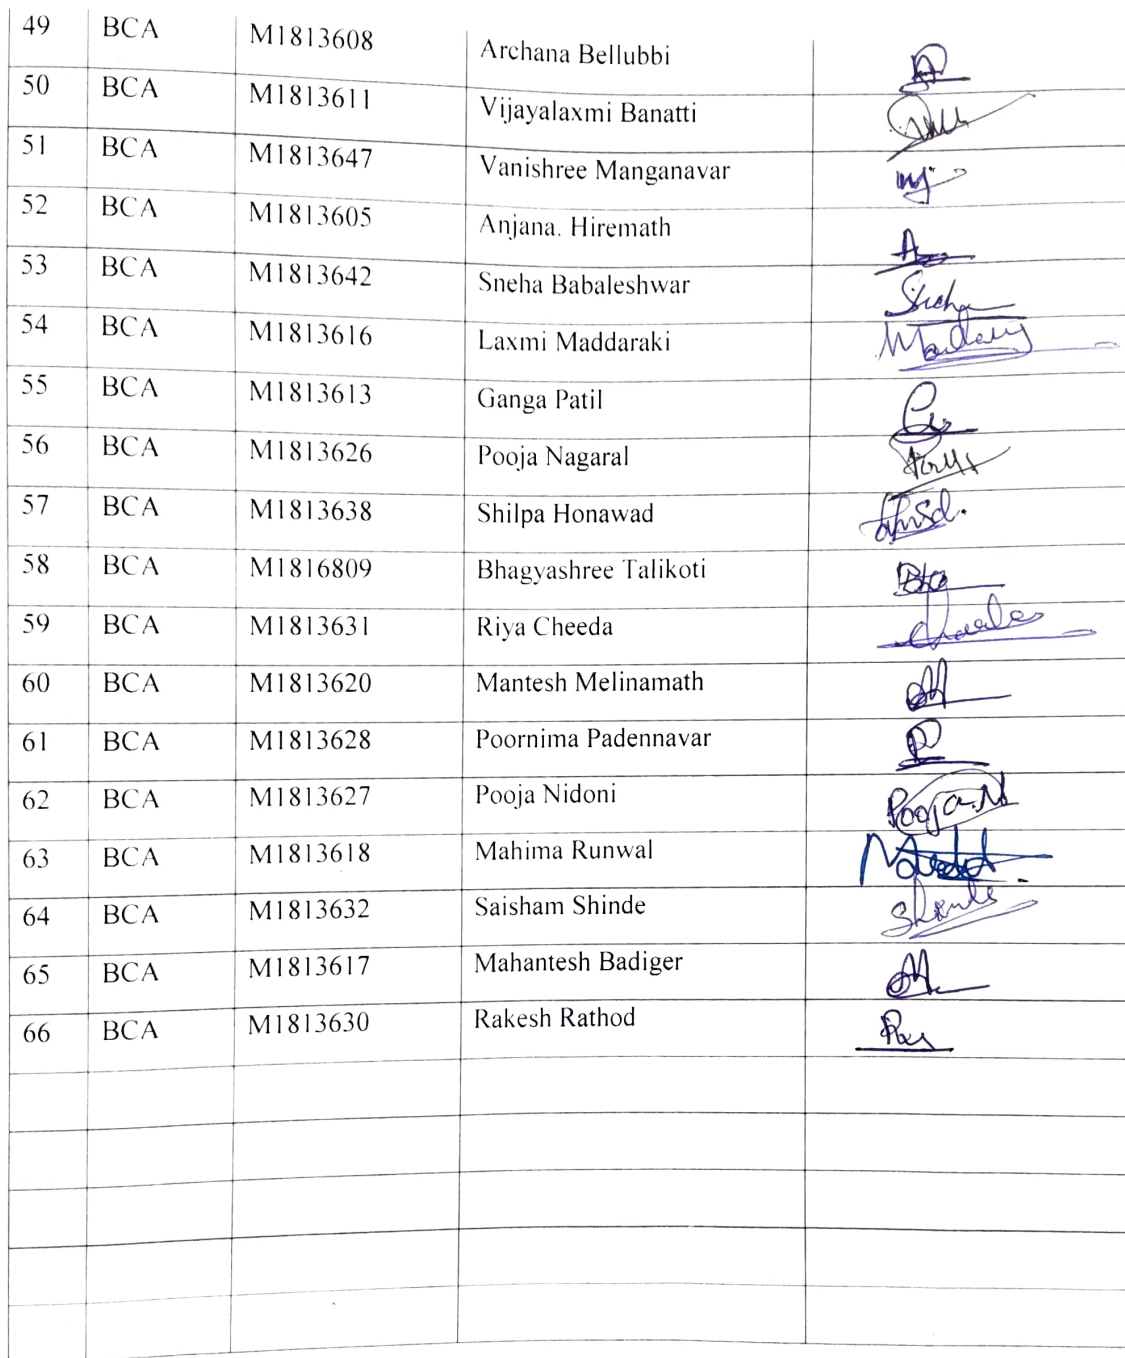 49 BCA M1813608 Archana Bellubbi
50 BCA M1813611 Vijayalaxmi Banatti
51 BCA M1813647 Vanishree Manganavar
52 BCA M1813605 Anjana. Hiremath
53 BCA M1813642 Sneha Babaleshwar
54 BCA M1813616 Laxmi Maddaraki
55 BCA M1813613 Ganga Patil
56 BCA M1813626 Pooja Nagaral
57 BCA M1813638 Shilpa Honawad
58 BCA M1816809 Bhagyashree Talikoti
59 BCA M1813631 Riya Cheeda
60 BCA M1813620 Mantesh Melinamath
61 BCA M1813628 Poornima Padennavar
62 BCA M1813627 Pooja Nidoni Pooja.N
63 BCA M1813618 Mahima Runwal
64 BCA M1813632 Saisham Shinde
65 BCA M1813617 Mahantesh Badiger
66 BCA M1813630 Rakesh Rathod